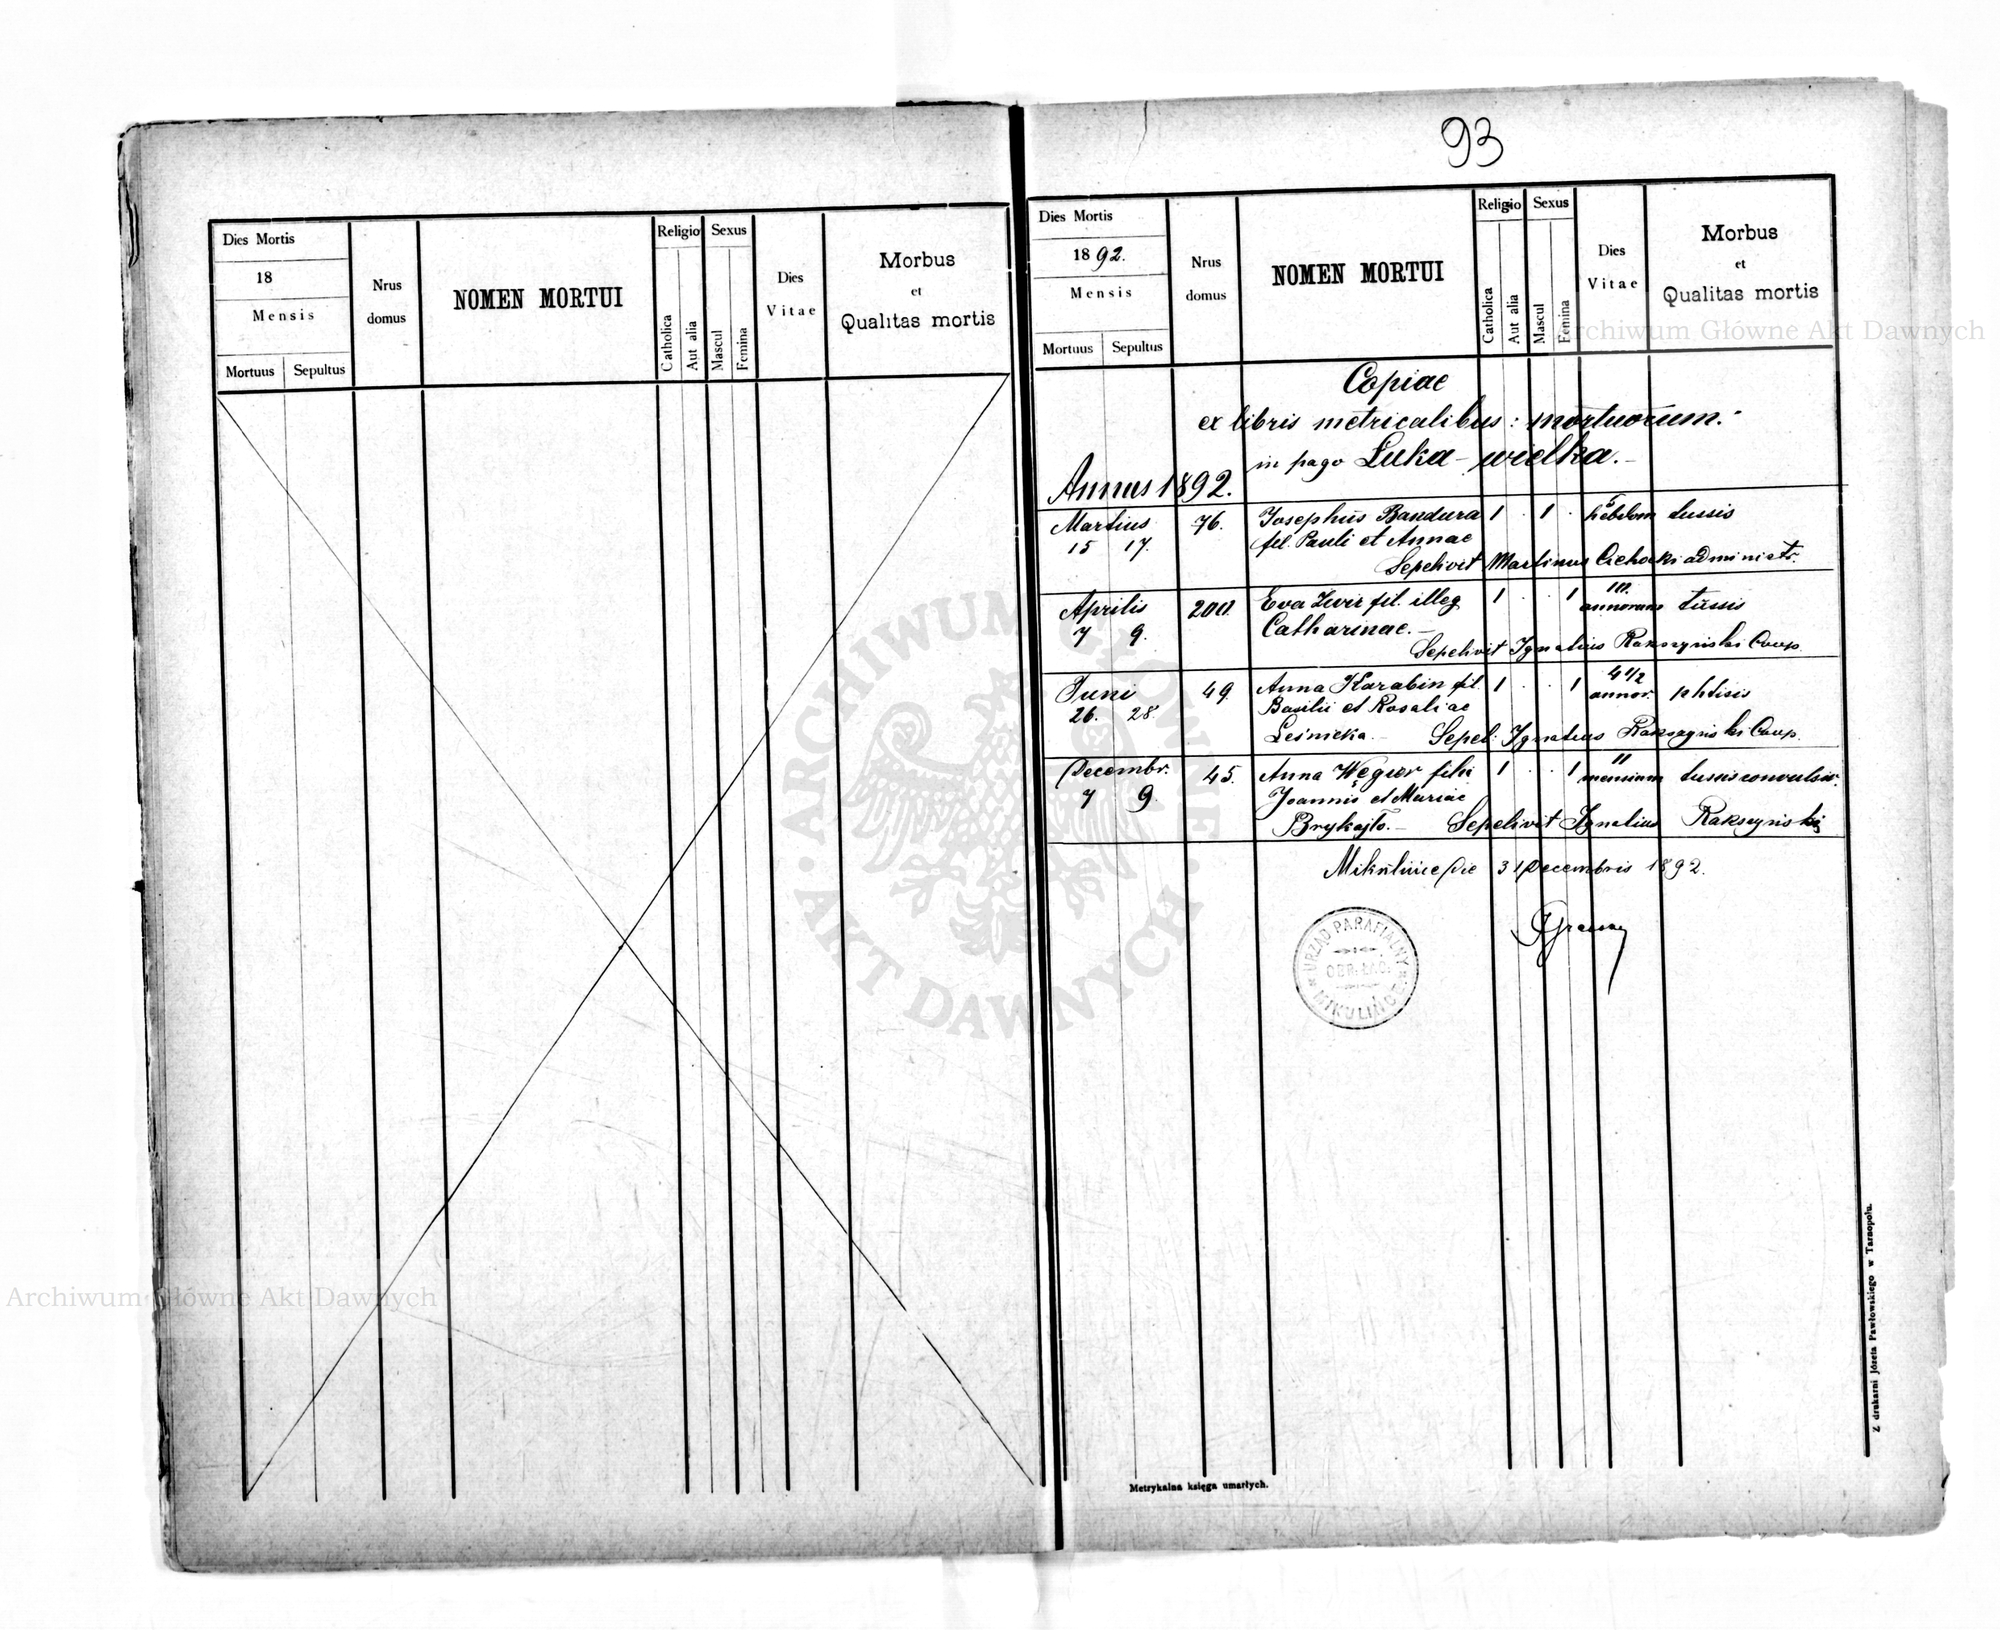 Dies Mortis
18
Mensis
Mortuus Sepultus
Nrus domus
NOMEN MORTUI
Religio
Catholica
Aut alia
Sexus
Mascul
Femina
Dies Vitae
Morbus
et
Qualitas mortis
93
Dies Mortis
1892.
Mensis
Mortuus Sepultus
Nrus domus
NOMEN MORTUI
Religio
Catholica
Aut alia
Sexus
Mascul
Femina
Dies Vitae
Morbus
et
Qualitas mortis
Copiae
ex libris metricalibus: mortuorum.
in pago Luka-wielka.
Annus 1892.
Martius 76. Josephus Bandura 1 . 1 . hebdom tussis
15 17. fil. Pauli et Annae
Sepelivit Martinus Cichocki administr.
Aprilis Eva fil. illeg 1 . . 1 annorum tussis
7 9. Catharinae.
Sepelivit Ignatius Rakszyński Coop.
Juni 49. Anna Karabin fil. 1 . . 1 4 1/2 annor. phtisis
26. 28. Basilii et Rosaliae
Leśnicka. Sepel: Ignatius Rakszyński Coop.
Decembr. 45. Anna Węgier filia 1 . . 1 11 mensium tussis convulsiv.
7 9. Joannis et Mariae
Brykajło. Sepelivit Ignatius Rakszyński
Mikulińce die 31 Decembris 1892.
URZĄD PARAFIALNY
OBR. ŁAC.
MIKULIŃCE
Metrykalna księga umarłych.
Z drukarni Józefa Pawłowskiego w Tarnopolu.
ARCHIWUM GŁÓWNE
AKT DAWNYCH
Archiwum Główne Akt Dawnych
Archiwum Główne Akt Dawnych